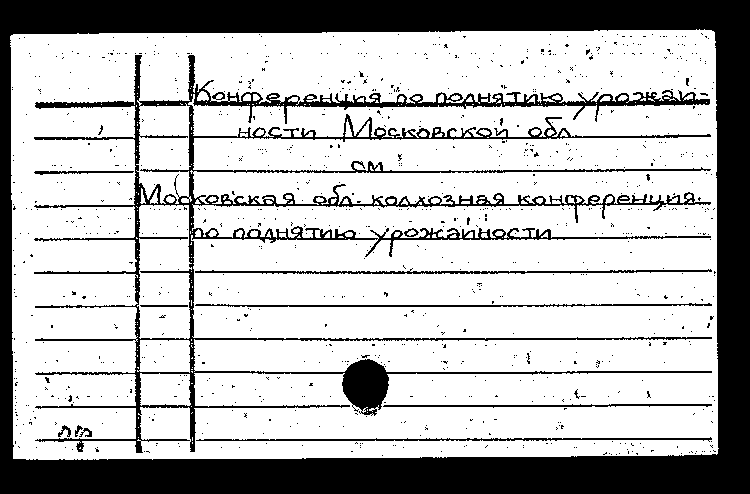 Конференция по поднятию урожай-
ности Московской обл.
см.
Московская обл. колхозная конференция
по поднятию урожайности